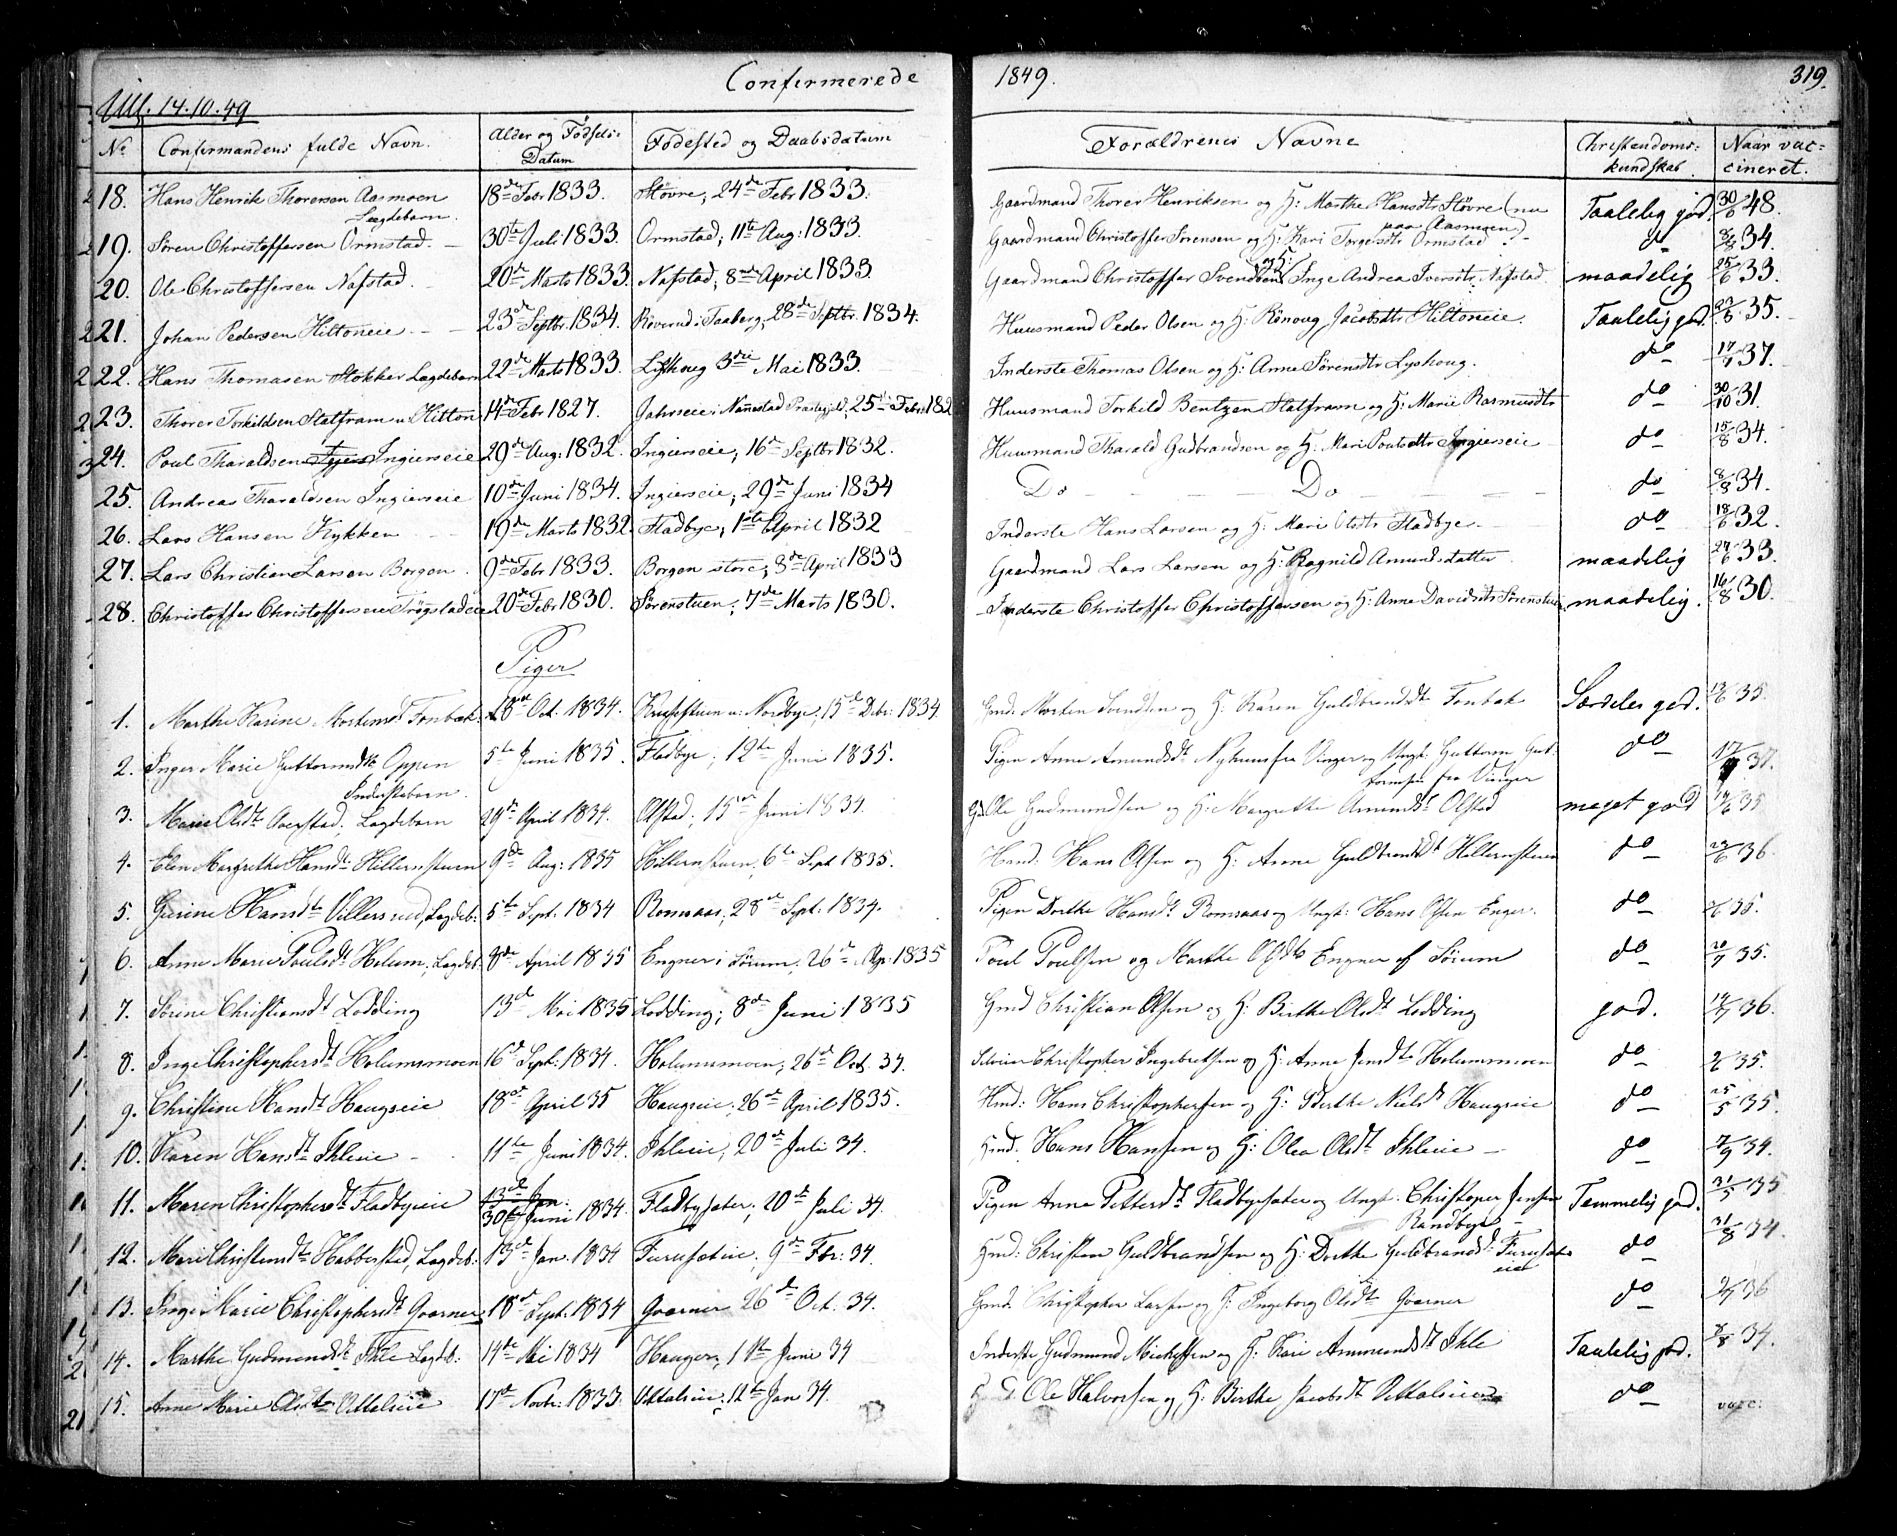 Confirmerede 1849. 319.
Ull. 14.10.49
No Confirmandens fulde Navn. Alder og Fødsels-Datum Fødested og Daabsdatum Forældrenes Navne Christendoms-kundskab. Naar vaccineret.
18. Hans Henrik Thorersen Aasmoen Lægdebarn. 18de Febr 1833. Støvre, 24de Febr 1833. Gaardmand Thorer Henriksen og H: Marthe Hansdtr Støvre (nu paa Aasmoen) Taalelig god. 30/6 48.
19. Søren Christoffersen Ormstad. 30te Juli 1833. Ormstad; 11te Aug: 1833. Gaardmand Christoffer Sørensen og H: Kari Torgersdtr Ormstad do 8/8 34.
20. Ole Christoffersen Nafstad. 20de Marts 1833. Nafstad; 8de April 1833. Gaardmand Christoffer Svendsen og H: Inge Andrea Iversdtr Nafstad. maadelig 25/6 33.
21. Johan Pedersen Hiltoneie. 23de Septbr. 1834. Røverud i Faaberg, 28de Septbr. 1834. Huusmand Peder Olsen og H. Rønnoug Jacobsdtr Hiltoneie. Taalelig god. 35.
22. Hans Thomasen Stokker Lægdebarn 22de Marts 1833. Lyshoug 3die Mai 1833. Inderste Thomas Olsen og H: Anne Sørensdtr Lyshoug. do 37.
23. Thorer Torkildsen Slatfram u. Hilton 14de Febr 1827. Jahrseie i Nannestad Præstegjeld, 25de Febr. 182 Huusmand Torkild Bentzen Slatfram og H: Marie Rasmusdtr do 30/10 31.
24. Poul Tharaldsen Ingierseie 29de Aug: 1832. Ingierseie, 16de Septbr 1832. Huusmand Tharald Gudbrandsen og H. Mari Poulsdtr Ingierseie do 15/8 34.
25. Andreas Tharaldsen Ingierseie 10de Juni 1834. Ingierseie; 29de Juni 1834 Do Do do 8/8 34.
26. Lars Hansen Kykken 19de Marts 1832. Fladbye; 1ste April 1832 Inderste Hans Larsen og H: Mari Olsdtr Fladbye. do 18/6 32.
27. Lars Christian Larsen Borgen. 9de Febr 1833. Borgen store; 8de April 1833 Gaardmand Lars Larsen og H: Ragnild Amundsdatter maadelig 27/6 33.
28. Christoffer Christoffersen Trøgstadeie 20de Febr 1830. Sørenstuen; 7de Marts 1830. Inderste Christoffer Christoffersen og H: Anne Davidsdtr Sørenstuen maadelig. 16/8 30.
Piger
1. Marthe Karine Mortensdt Fonbæk. 28de Oct. 1834. Nordbye, 15de Dcbr: 1834. Gmd. Morten Svendsen og H. Karen Guldbrandsdt Fonbæk Særdeles god. 35.
2. Inger Marie Guttormsdt Oppen Inderstebarn. 5te Juni 1835. Fladbye; 12te Juni 1835. Pigen Anne Amundsdt fra Vinger og Ungk. Guttorm Guttormsen fra Vinger do 17/ 37.
3. Marie Olsdt Aaerstad, Lægdebarn 29de April 1834. Olstad; 15de Juni 1834. Ole Gudmundsen og H: Margrethe Amundsdt Olstad meget god 35
4. Elen Margrethe Hansdt Hillernstuen 9de Aug: 1835 Hillernstuen, 6te Sept 1835. Hmd: Hans Olsen og H: Anne Guldbrandsdt Hillernstuen do 36.
5. Gurine Hansdt Villersrud, Lægdeb: 5te Sept: 1834 Romsaas, 28de Sept: 1834. Pigen Dorthe Hansdt Romsaas og Ungk: Hans Olsen Enger. do 35.
6. Anne Marie Poulsdt Holum, Lægdeb: 8de April 1835 Engner i Sørum, 26de Ap: 1835 Poul Poulsen og Marthe Olsdt Engner af Sørum do 35.
7. Sørine Christiansdt Lodding 13de Mai 1835 Lodding; 8de Juni 1835 Gmd Christian Olsen og H: Birthe Olsdt Lodding god. 36.
8. Inge Christophersdt Holumsmoen 16de Sept: 1834. Holumsmoen, 26de Oct. 34. Christopher Ingebretsen og H: Anne Jensdt Holumsmoen do 35.
9. Christine Hansdt Haugseie 18de April 35 Haugseie, 26de April 1835. Hmd: Hans Christophersen og H: Berthe Nielsdt Haugseie do 25/5 35.
10. Karen Hansdt Ihleeie 11te Juni 1834. Ihleeie, 20de Juli 34. Hmd. Hans Hansen og H: Olea Olsdt Ihleeie do 34.
11. Maren Christophersdt Fladbyeeie 13de Jan: 30te Juni 1834. Fladbysæter, 20de Juli 34. Pigen Anne Pettersdt Fladbyesæter og Ungk. Christoper Jensen Randbye Temmelig god. 31/5 35
12. Mari Christiansdt Habberstad, Lægdeb: 13de Jan. 1834 Furusæteie, 9de Fbr: 34. Hmd: Christian Guldbrandsen og H: Dorthe Guldbrandsdt: Furusæteeiet do 31/8 34.
13. Inge Marie Christophersdt Qværner 18de Sept: 1834 Qværner 26de Oct. 34. Gmd. Christopher Larsen og H: Ingeborg Olsdt Qværner do 36
14. Marthe Gudmundsdt Ihle Lægdb: 14de Mai 1834 Hauger, 1ste Juni 34 Inderste Gudmund Mickelsen og H: Kari Ammundsdt Ihle Taalelig god. 34.
15. Anne Marie Olsdtr Vittalseie 17de Novbr: 1833. Vittalseie; 12te Jan 34. Ole Halvorsen og H: Birthe Jacobsdt Vittalseie do vacc: